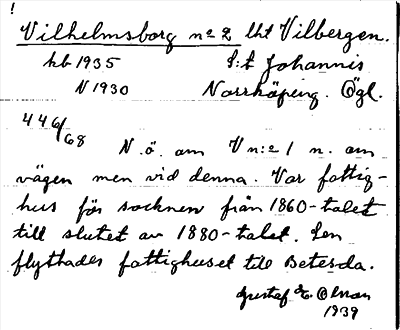 Vilhelmsborg nº 2 lht Vilbergen.
hb 1935 S:t Johannis
N 1930 Norrköping. Ögl.
446/68 N.ö. om V n:o 1 n. om
vägen men vid denna. Var fattig-
hus för socknen från 1860-talet
till slutet av 1880-talet. Sen
flyttades fattighuset till Betesda.
Gustaf E. Olman
1939